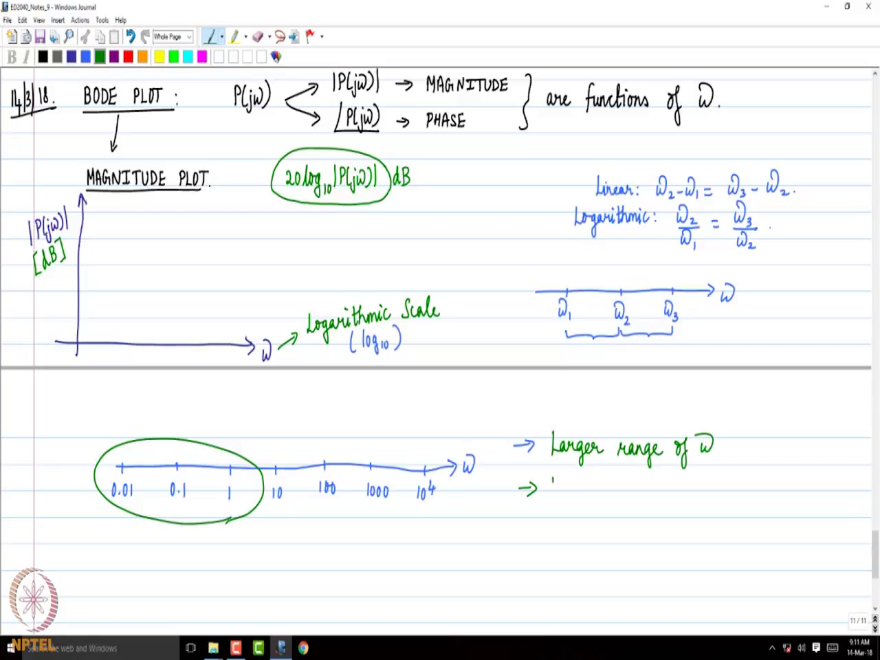 ED2040_Notes_9 - Windows Journal
File Edit View Insert Actions Tools Help
Whole Page
14|3|18. BODE PLOT : P(jω) |P(jω)| → MAGNITUDE
∠P(jω) → PHASE
are functions of ω.
MAGNITUDE PLOT.
20 log₁₀ |P(jω)| dB
Linear: ω₂-ω₁ = ω₃-ω₂.
Logarithmic: ω₂/ω₁ = ω₃/ω₂.
|P(jω)|
[dB]
ω → Logarithmic Scale
(log₁₀)
ω₁ ω₂ ω₃ ω
0.01 0.1 1 10 100 1000 10⁴ ω
→ Larger range of ω
→
11 / 11
NPTEL
the web and Windows
9:11 AM
14-Mar-18